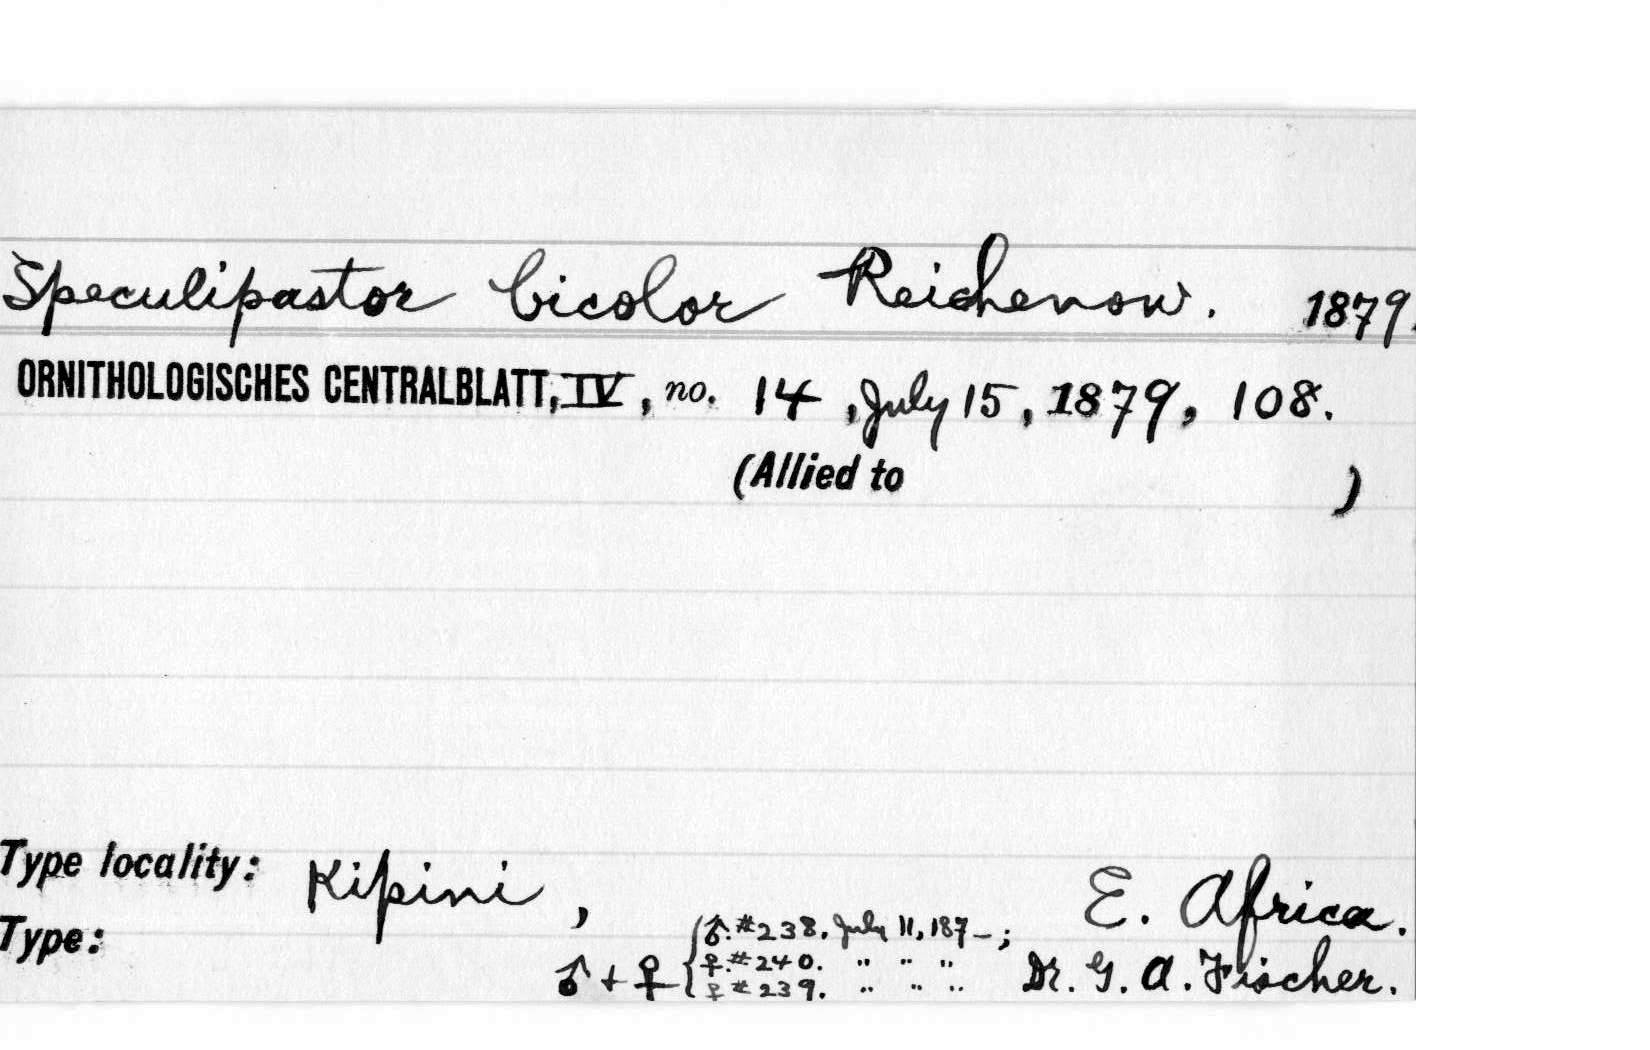 Speculipastor bicolor Reichenow. 1879.
ORNITHOLOGISCHES CENTRALBLATT, IV, no. 14, July 15, 1879, 108.
(Allied to )
Type locality: Kipini, E. Africa.
Type: ♂ + ♀ { ♂. #238. July 11, 187–; Dr. G. A. Fischer.
♀. #240. " " "
♀ #239. " " "